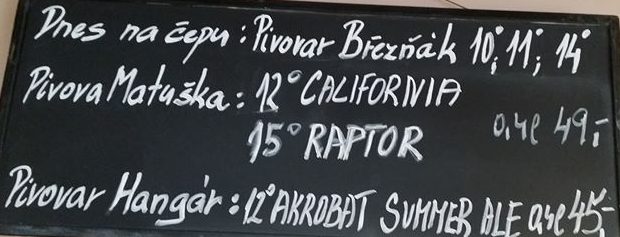 Dnes na čepu: Pivovar Březňák 10°, 11°, 14°
Pivova Matuška: 12° CALIFORNIA
15° RAPTOR 0,4l 49,-
Pivovar Hangár: 12° AKROBAT SUMMER ALE 0,4l 45,-